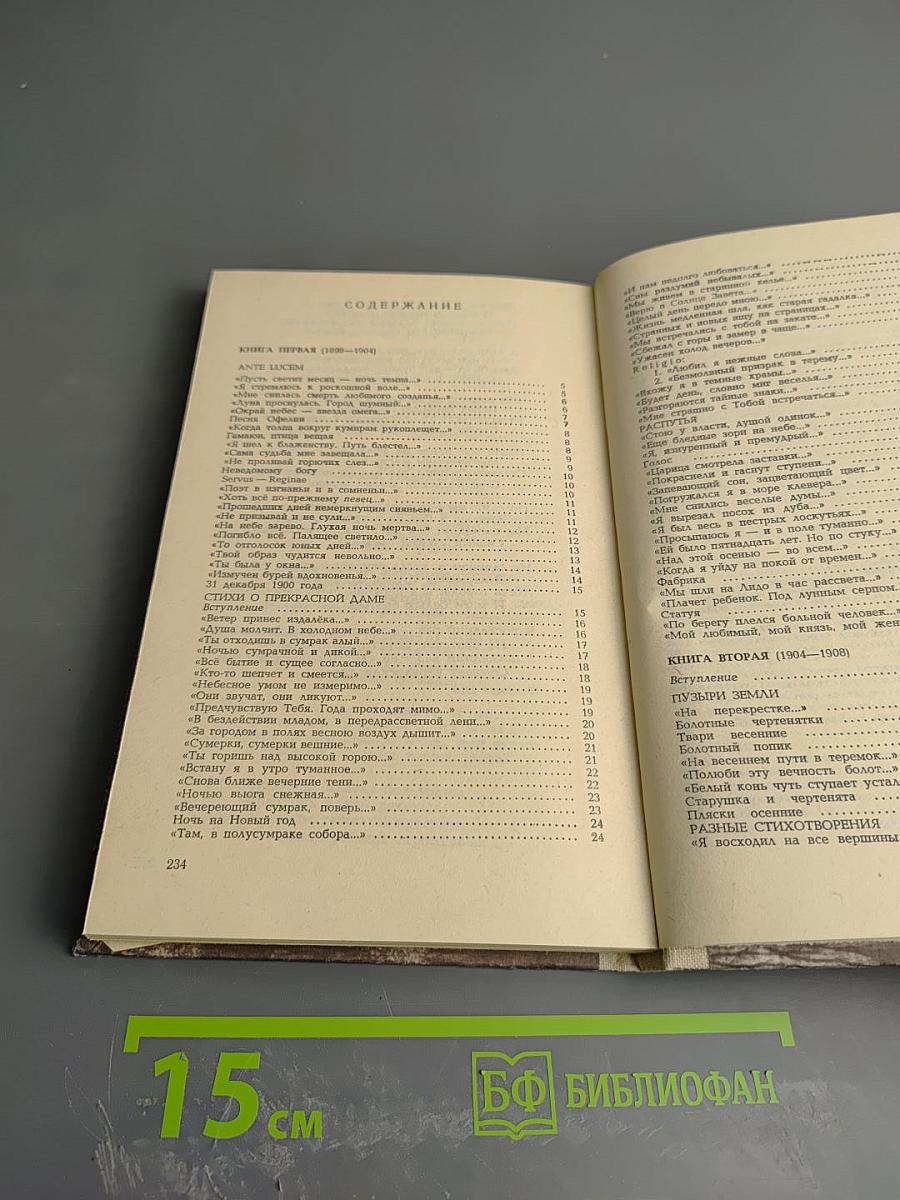 СОДЕРЖАНИЕ
КНИГА ПЕРВАЯ (1898—1904)
ANTE LUCEM
«Пусть светит месяц — ночь темна...» 5
«Я стремлюсь к роскошной воле...» 5
«Мне снилась смерть любимого созданья...» 6
«Луна проснулась. Город шумный...» 6
«Окрай небес — звезда омега...» 7
Песня Офелии 7
«Когда толпа вокруг кумирам рукоплещет...» 8
Гамаюн, птица вещая 8
«Я шел к блаженству. Путь блестел...» 8
«Сама судьба мне завещала...» 9
«Не проливай горючих слез...» 9
Неведомому богу 10
Servus — Reginae 10
«Поэт в изгнаньи и в сомненьи...» 10
«Хоть всё по-прежнему певец...» 11
«Прошедших дней немеркнущим сияньем...» 11
«Не призывай и не сули...» 11
«На небе зарево. Глухая ночь мертва...» 12
«Погибло всё. Палящее светило...» 12
«То отголосок юных дней...» 13
«Твой образ чудится невольно...» 13
«Ты была у окна...» 14
«Измучен бурей вдохновенья...» 14
31 декабря 1900 года 15
СТИХИ О ПРЕКРАСНОЙ ДАМЕ
Вступление 15
«Ветер принес издалёка...» 16
«Душа молчит. В холодном небе...» 16
«Ты отходишь в сумрак алый...» 17
«Ночью сумрачной и дикой...» 17
«Всё бытие и сущее согласно...» 18
«Кто-то шепчет и смеется...» 18
«Небесное умом не измеримо...» 19
«Они звучат, они ликуют...» 19
«Предчувствую Тебя. Года проходят мимо...» 19
«В бездействии младом, в передрассветной лени...» 20
«За городом в полях весною воздух дышит...» 20
«Сумерки, сумерки вешние...» 21
«Ты горишь над высокой горою...» 21
«Встану я в утро туманное...» 22
«Снова ближе вечерние тени...» 22
«Ночью вьюга снежная...» 23
«Вечереющий сумрак, поверь...» 23
Ночь на Новый год 24
«Там, в полусумраке собора...» 24
234
«И нам недолго любоваться...»
«Сны раздумий небывалых...»
«Мы живем в старинной келье...»
«Верю в Солнце Завета...»
«Целый день передо мною...»
«Жизнь медленная шла, как старая гадалка...»
«Странных и новых ищу на страницах...»
«Мы встречались с тобой на закате...»
«Сбежал с горы и замер в чаще...»
«Ужасен холод вечеров...»
Religio:
1. «Любил я нежные слова...»
2. «Безмолвный призрак в терему...»
«Вхожу я в темные храмы...»
«Будет день, словно миг веселья...»
«Разгораются тайные знаки...»
«Мне страшно с Тобой встречаться...»
РАСПУТЬЯ
«Стою у власти, душой одинок...»
«Еще бледные зори на небе...»
«Я, изнуренный и премудрый...»
Голос
«Царица смотрела заставки...»
«Покраснели и гаснут ступени...»
«Запевающий сон, зацветающий цвет...»
«Погружался я в море клевера...»
«Мне снились веселые думы...»
«Я вырезал посох из дуба...»
«Я был весь в пестрых лоскутьях...»
«Просыпаюсь я — и в поле туманно...»
«Ей было пятнадцать лет. Но по стуку...»
«Над этой осенью — во всем...»
«Когда я уйду на покой от времен...»
Фабрика
«Мы шли на Лидо в час рассвета...»
«Плачет ребенок. Под лунным серпом...
Статуя
«По берегу плелся больной человек...»
«Мой любимый, мой князь, мой жен
КНИГА ВТОРАЯ (1904—1908)
Вступление
ПУЗЫРИ ЗЕМЛИ
«На перекрестке...»
Болотные чертенятки
Твари весенние
Болотный попик
«На весеннем пути в теремок...»
«Полюби эту вечность болот...»
«Белый конь чуть ступает устал
Старушка и чертенята
Пляски осенние
РАЗНЫЕ СТИХОТВОРЕНИЯ
«Я восходил на все вершины
15 см
БФ БИБЛИОФАН